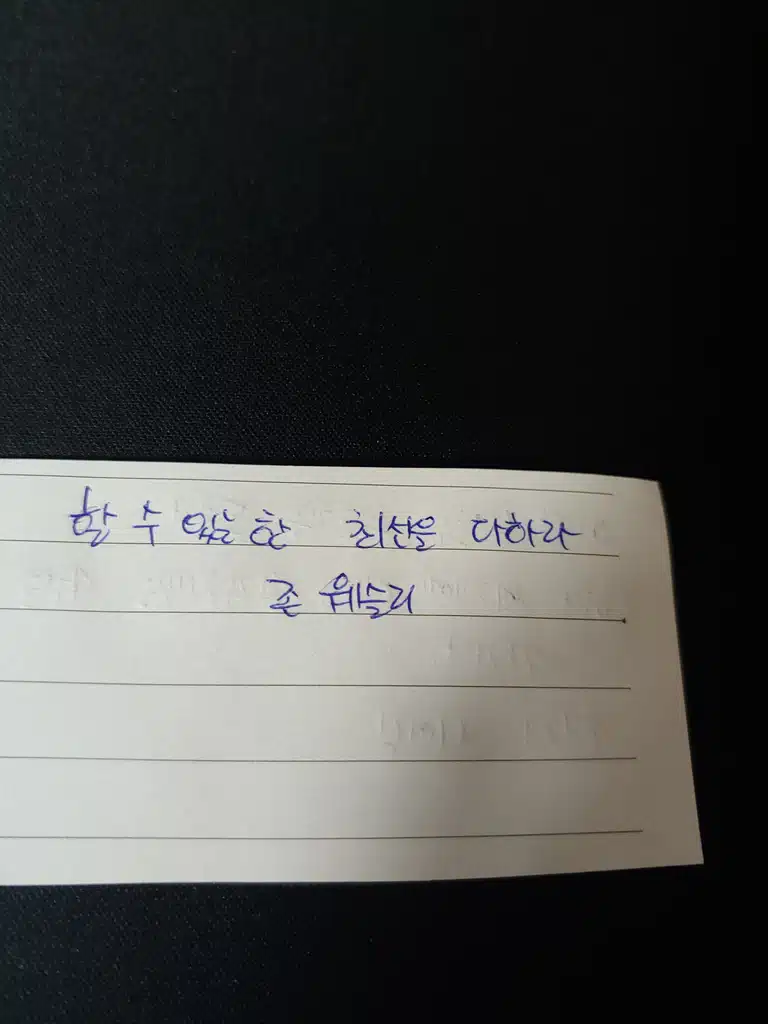 할 수 있는 한 최선을 다하라
존 웨슬리